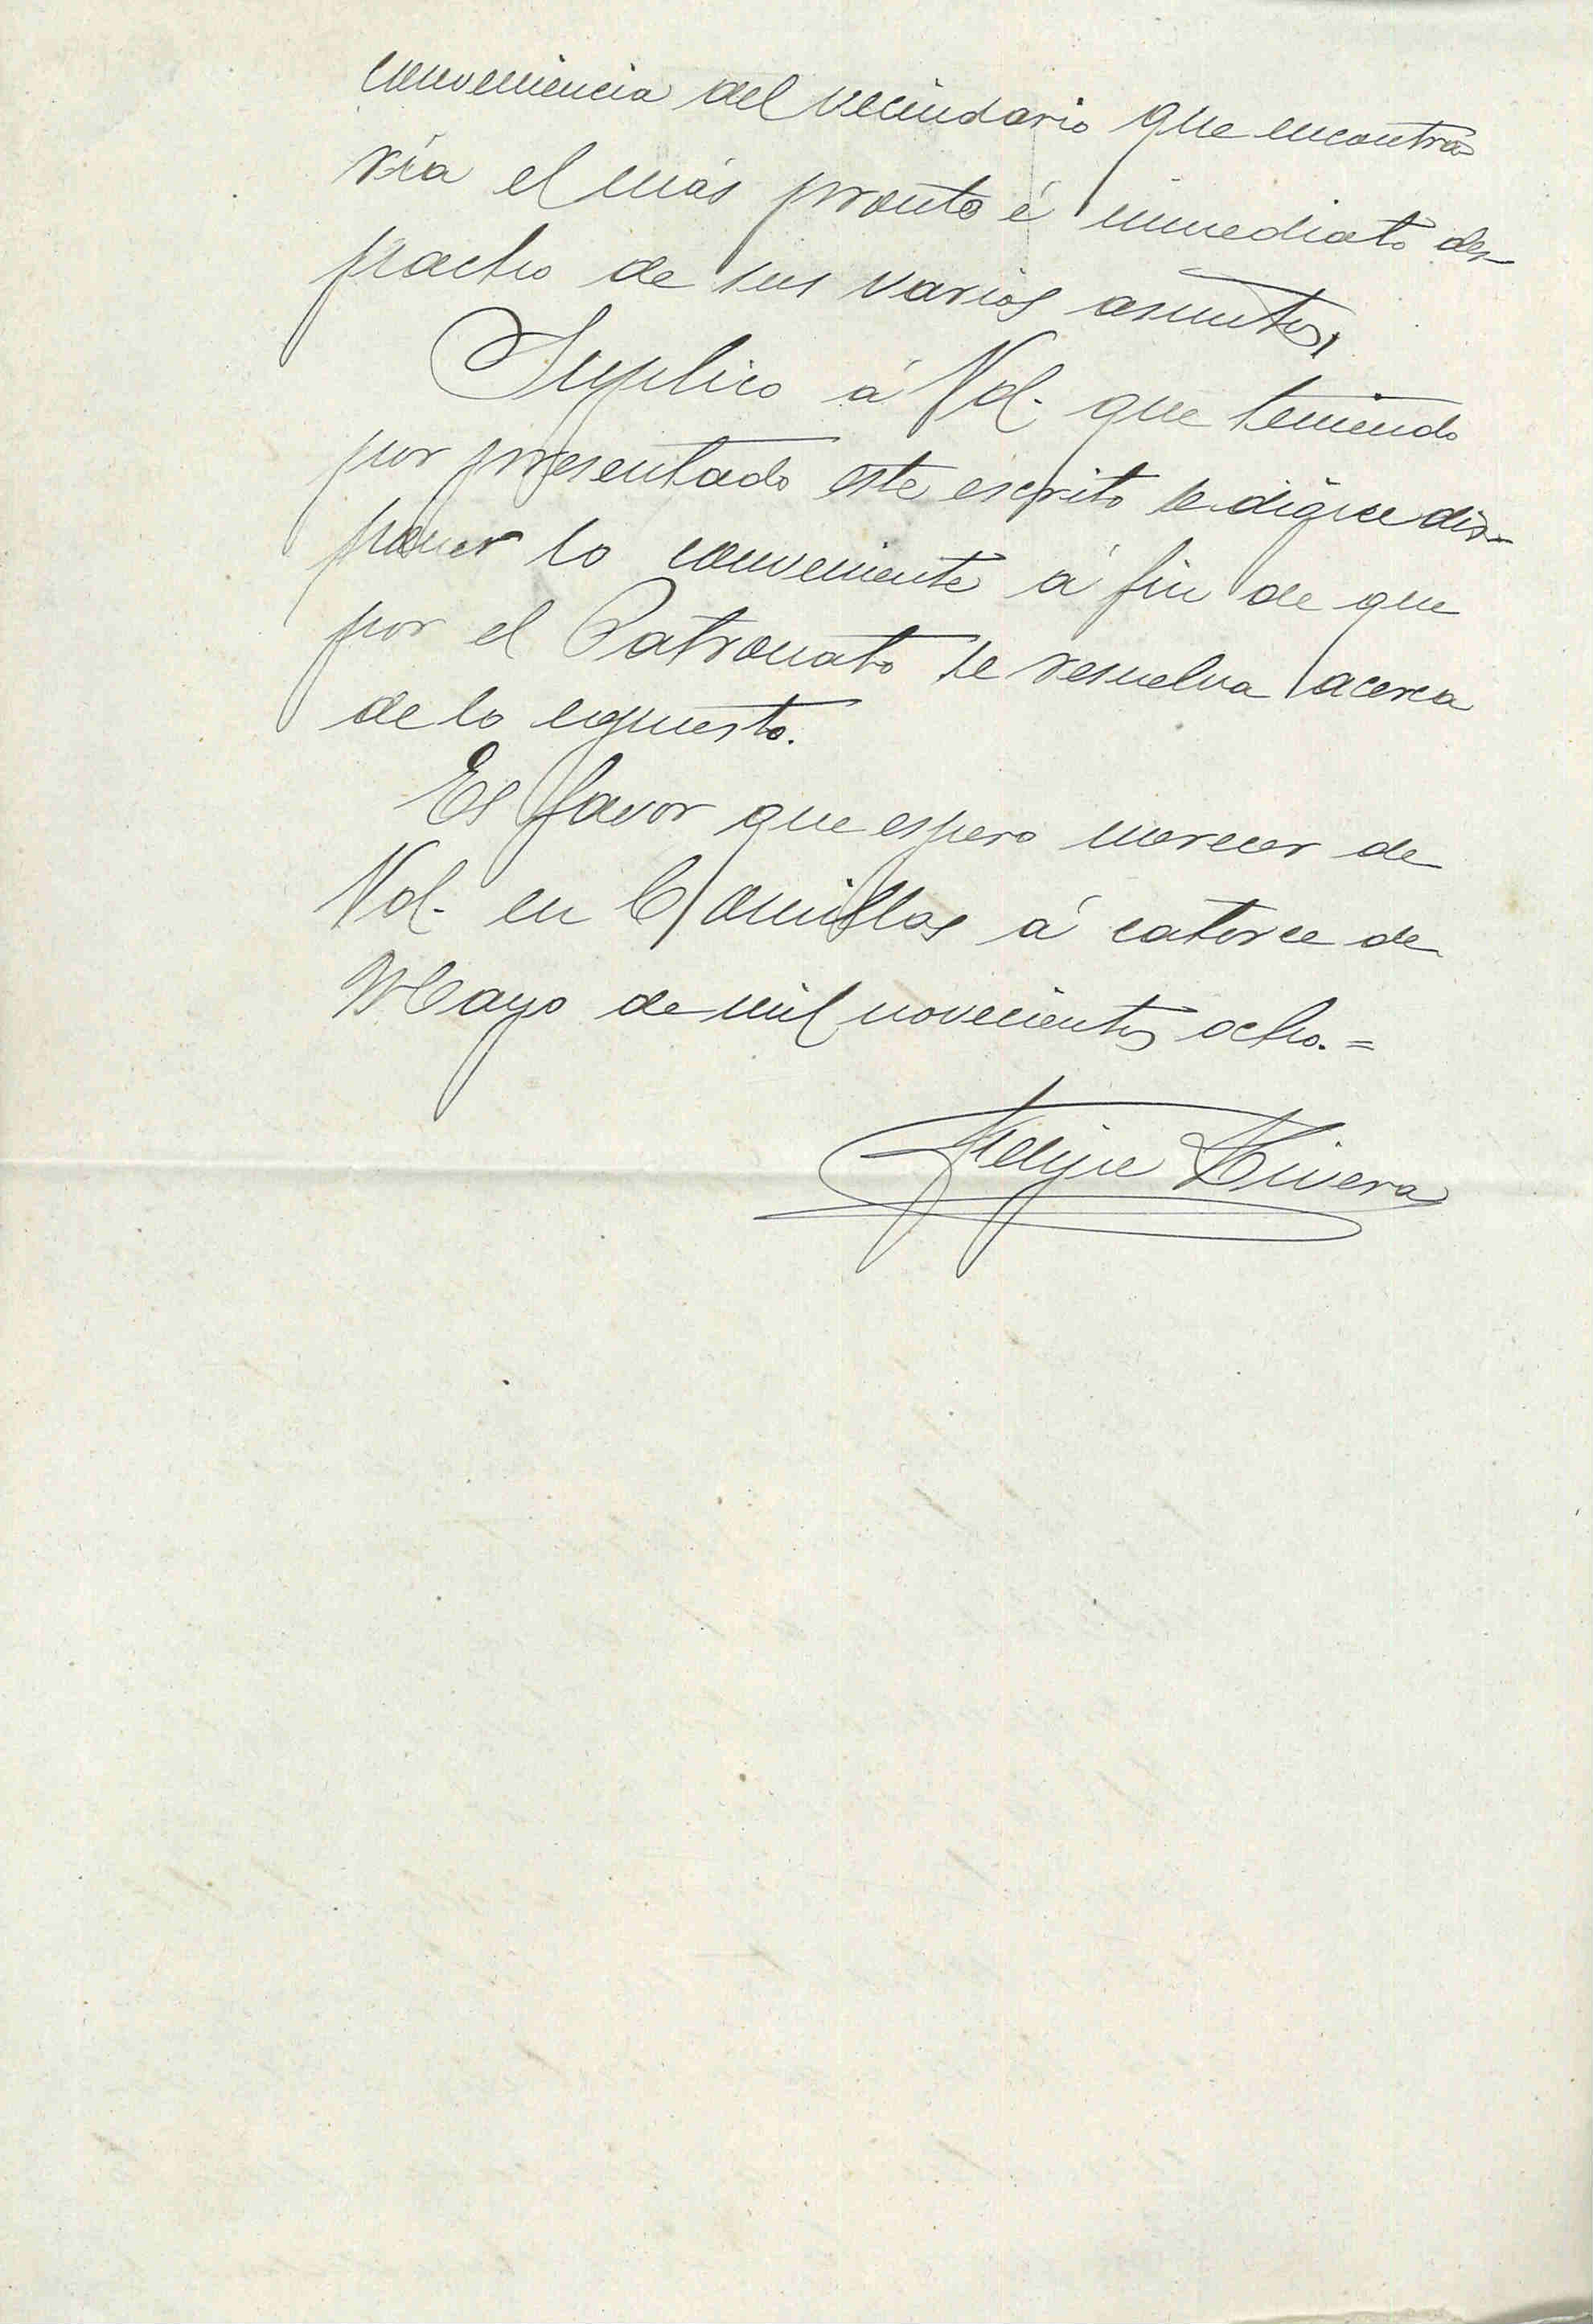 conveniencia del vecindario que encontra
ría el más pronto é inmediato des-
pacho de sus varios asuntos,
Suplico á Vd. que teniendo
por presentado este escrito se digne dis-
poner lo conveniente á fin de que
por el Patronato se resuelva acerca
de lo expuesto.
Es favor que espero merecer de
Vd. en Comillas á catorce de
Mayo de mil novecientos ocho.=
Felipe Rivera